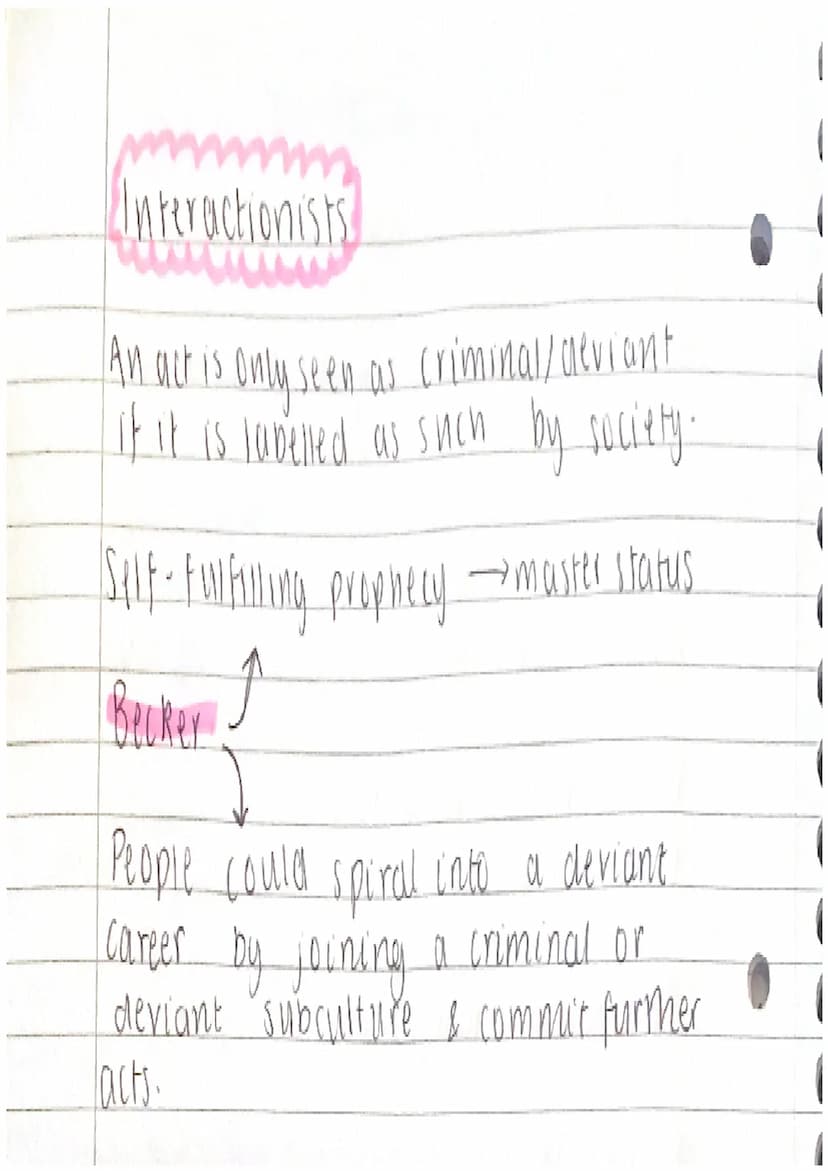 Interactionists
An act is only seen as criminal/deviant
if it is labelled as such by society.
Self-fulfilling prophecy → master status
Becker
People could spiral into a deviant
career by joining a criminal or
deviant subculture & commit further
acts.